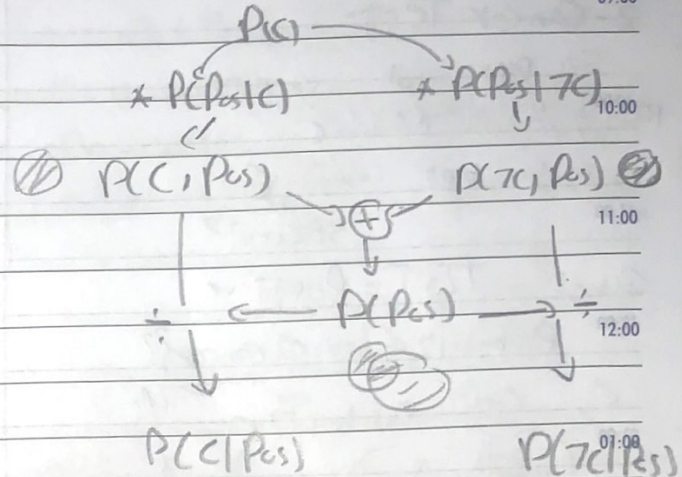 P(C)
* P(Pos|C) * P(Pos|7C) 10:00
P(C, Pos) P(7C, Pos)
+ 11:00
÷ P(Pos) ÷ 12:00
P(C|Pos) P(7C|Pos) 01:00